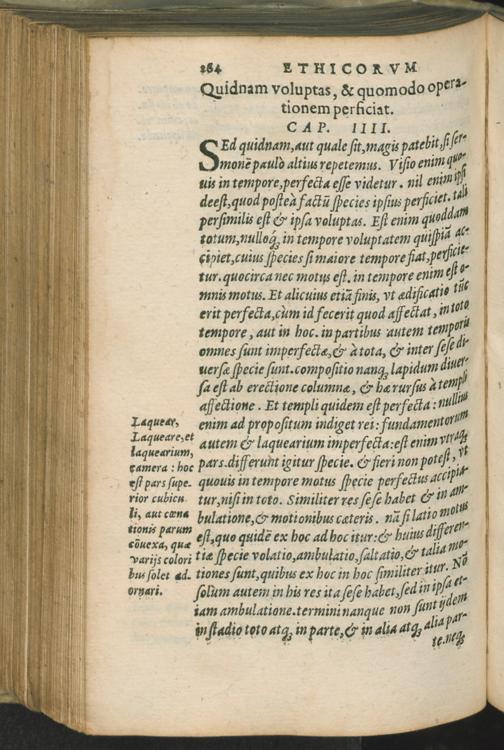 264 ETHICORVM
Quidnam voluptas, & quomodo opera-
tionem perficiat.
CAP. IIII.
SEd quidnam, aut quale sit, magis patebit, si ser-
monē paulò altius repetemus. Visio enim quo-
uis in tempore, perfecta esse videtur. nil enim ipsi
deest, quod posteà factū species ipsius perficiet. tali
persimilis est & ipsa voluptas. Est enim quoddam
totum, nulloq́; in tempore voluptatem quispiā ac-
cipiet, cuius species si maiore tempore fiat, perficie-
tur. quocirca nec motus est. in tempore enim est o-
mnis motus. Et alicuius etiā finis, vt ædificatio tūc
erit perfecta, cùm id fecerit quod affectat, in toto
tempore, aut in hoc. in partibus autem temporis
omnes sunt imperfectæ, & à tota, & inter sese di-
uersæ specie sunt. compositio nanq; lapidum diuer-
sa est ab erectione columnæ, & hæ rursus à templi
affectione. Et templi quidem est perfecta: nullius
enim ad propositum indiget rei: fundamentorum
autem & laquearium imperfecta: est enim vtraq;
pars. differunt igitur specie. & fieri non potest, vt
quouis in tempore motus specie perfectus accipia-
tur, nisi in toto. Similiter res sese habet & in am-
bulatione, & motionibus cæteris. nā si latio motus
est, quo quidē ex hoc ad hoc itur: & huius differen-
tiæ specie volatio, ambulatio, saltatio, & talia mo-
tiones sunt, quibus ex hoc in hoc similiter itur. Nō
solum autem in his res ita sese habet, sed in ipsa et-
iam ambulatione. termini nanque non sunt ijdem
in stadio toto atq; in parte, & in alia atq; alia par-
te. neq;
Laquear,
Laqueare, et
laquearium,
camera: hoc
est pars supe-
rior cubicu
li, aut cœna
tionis parum
cōuexa, quæ
varijs colori
bus solet ad-
ornari.